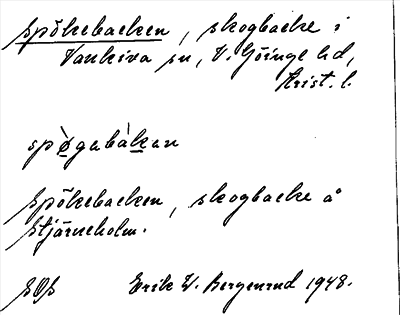 Spökebacken, skogbacke i
Vankiva sn, V. Göinge hd,
Krist. l.
spø̀gabàkan
Spökebacken, skogbacke å
Stjärneholm.
SOS Erik W. Bergenrud 1948.